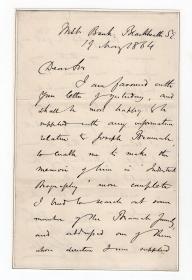 Bank, Blackheath S.E.
19 May 1864
Dear Sir
I am favored with
your letter of yesterday, and
shall be most happy to be
supplied with any information
relative to Joseph Bramah
to enable me to make the
memoir of him in "Industrial
Biography" more complete
I tried to search out some
member of the Bramah family,
and addressed one of them
whose direction I was supplied